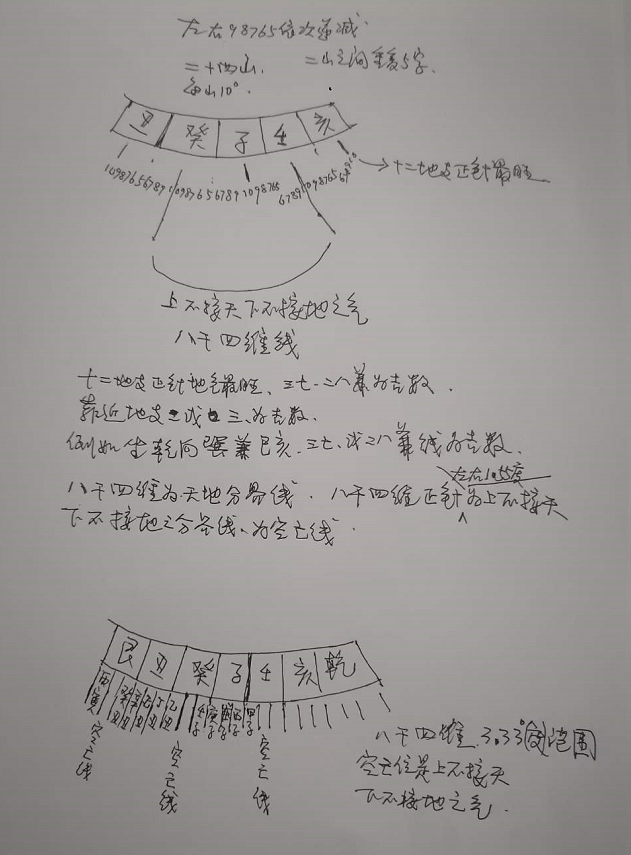 左右98765依次递减
=十四山.
=山之间重复5字.
每山10°.
丑 癸 子 壬 亥
1098765678910987656789109876567891098765
→十二地支正针最旺
上不接天下不接地之气
八干四维线
十二地支正针地气最旺、三七.二八兼为吉数.
靠近地支二或三为吉数.
例如坐乾向巽兼巳亥.三七.或二八兼线为吉数.
左右1.55度
八干四维为天地分界线. 八干四维正针为上不接天
下不接地之分界线、为空亡线.
艮 丑 癸 子 壬 亥 乾
丙寅 癸丑 辛丑 丁丑 乙丑 壬子 庚子 戊子 丙子 甲子
空亡线
空亡线
空亡线
八干四维 3.33°的范围
空亡位是上不接天
下不接地之气.